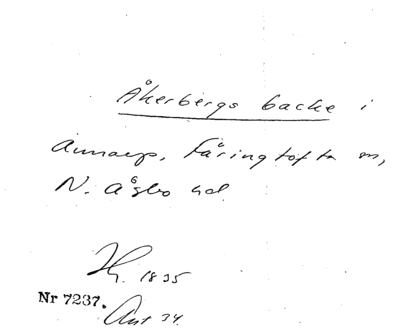 Åkerbergs backe i
Annarp, Färingtofta sn,
N. Åsbo hd.
Hz. 1835
Nr 7237.
Ant 34.